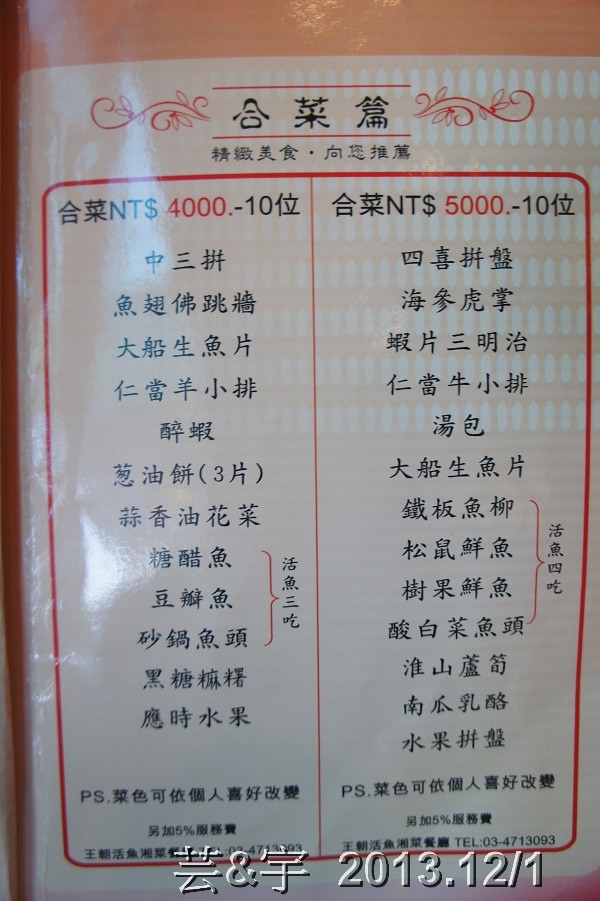 合菜篇
精緻美食·向您推薦
合菜NT$ 4000.-10位
中三拼
魚翅佛跳牆
大船生魚片
仁當羊小排
醉蝦
葱油餅(3片)
蒜香油花菜
糖醋魚
豆瓣魚
砂鍋魚頭
活魚三吃
黑糖麻糬
應時水果
PS.菜色可依個人喜好改變
另加5%服務費
王朝活魚湘菜餐廳 TEL:03-4713093
合菜NT$ 5000.-10位
四喜拼盤
海參虎掌
蝦片三明治
仁當牛小排
湯包
大船生魚片
鐵板魚柳
松鼠鮮魚
樹果鮮魚
酸白菜魚頭
活魚四吃
淮山蘆筍
南瓜乳酪
水果拼盤
PS.菜色可依個人喜好改變
另加5%服務費
王朝活魚湘菜餐廳 TEL:03-4713093
芸&宇 2013.12/1